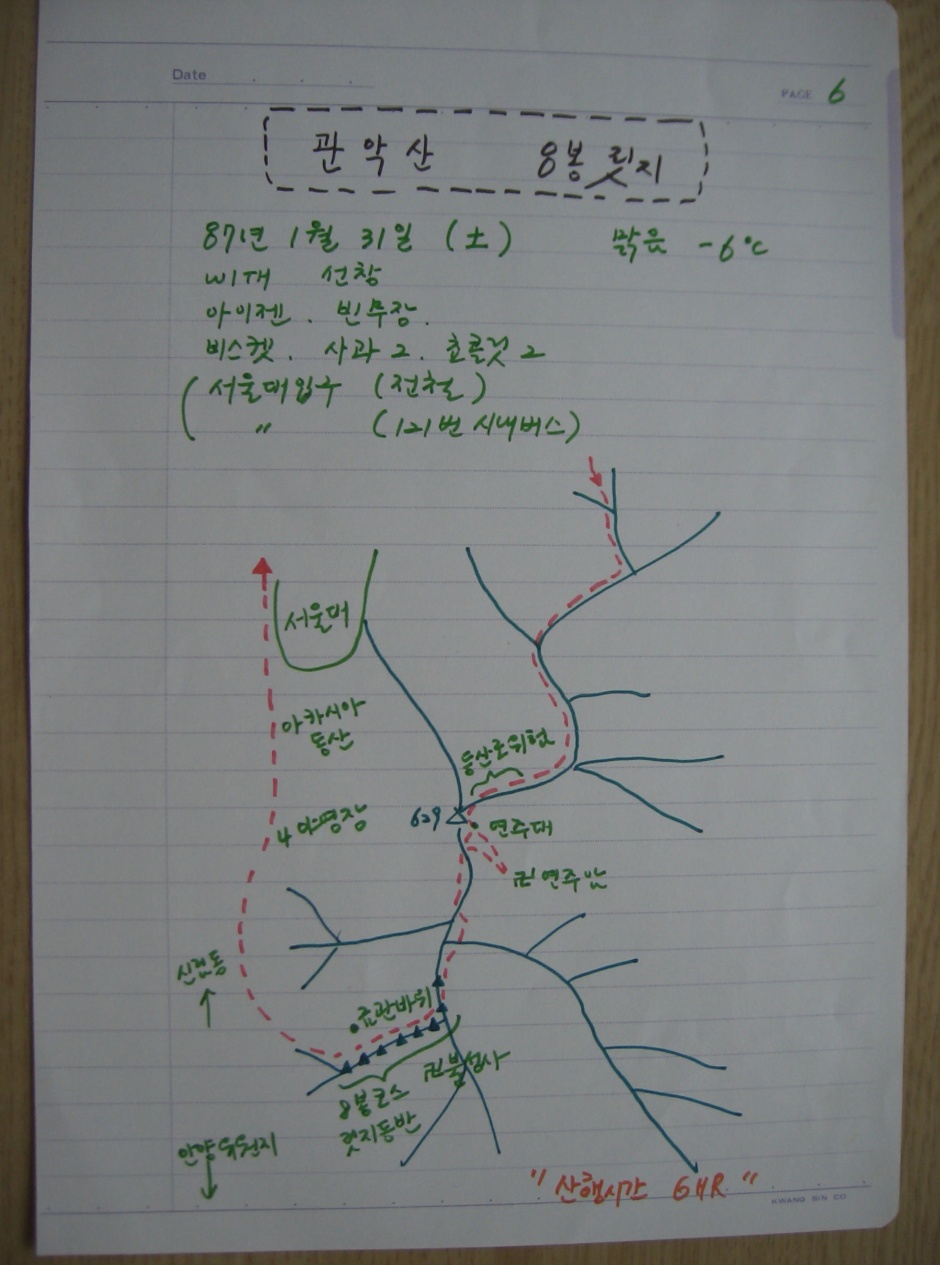 Date
PAGE 6
관악산 8봉 릿지
87년 1월 31일 (土) 맑음 -6℃
W/대 선창
아이젠. 빈무장.
비스켓. 사과 2. 쵸콜렛 2
( 서울대입구 (전철)
( 〃 (121번 시내버스)
서울대
아카시아
동산
등산로위험
629
4 야영장
연주대
卍 연주암
신림동
관바위
卍 불성사
8봉코스
릿지등반
안양유원지
" 산행시간 6HR "
KWANG SIN CO